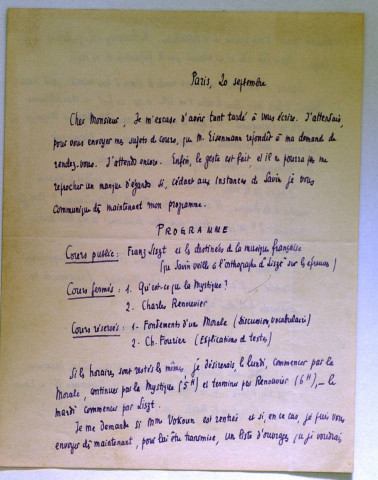 Paris, 20 septembre
Cher Monsieur, Je m'excuse d'avoir tant tardé à vous écrire. J'attendais,
pour vous envoyer mes sujets de cours, que M. Eisenmann répondît à ma demande de
rendez-vous. J'attends encore. Enfin, le geste est fait et il ne pourra pas me
reprocher un manque d'égards si, cédant aux instances de Savin je vous
communique dès maintenant mon programme.
PROGRAMME
Cours public : Franz Liszt et les destinées de la musique française
(que Savin veille à l'orthographe de "Liszt" sur les épreuves)
Cours fermés : 1. Qu'est-ce que la Mystique ?
2. Charles Renouvier
Cours réservés : 1- Fondements d'une Morale (Discussion, vocabulaire)
2- Ch. Fourier (Explications de textes)
Si les horaires sont restés les mêmes, je désirerais, le lundi, commencer par la
Morale, continuer par la Mystique (5H) et terminer par Renouvier (6H), - le
mardi commencer par Liszt.
Je me demande si Mme Vokoun est rentrée et si, en ce cas, je puis vous
envoyer dès maintenant, pour lui être transmise, une liste d'ouvrages que je voudrais